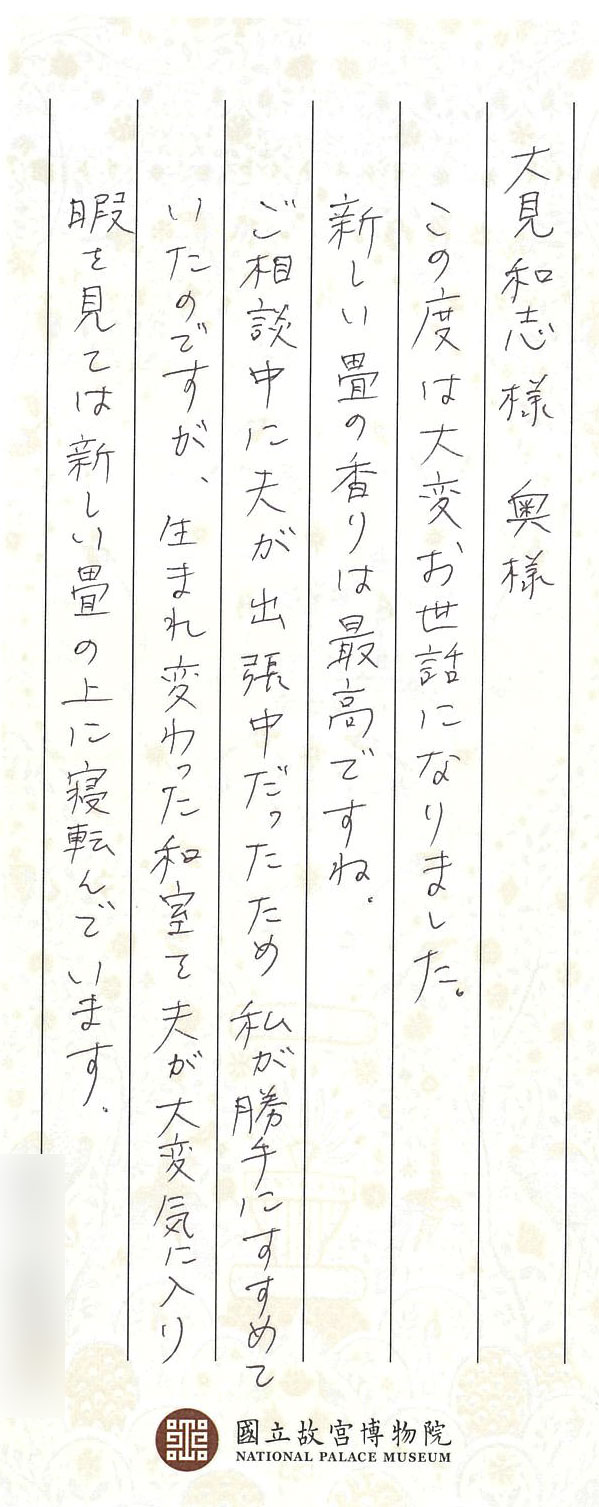 大見和志様 奥様
この度は大変お世話になりました。
新しい畳の香りは最高ですね。
ご相談中に夫が出張中だったため 私が勝手にすすめて
いたのですが、生まれ変わった和室を夫が大変気に入り
暇を見ては新しい畳の上に寝転んでいます。
國立故宮博物院
NATIONAL PALACE MUSEUM